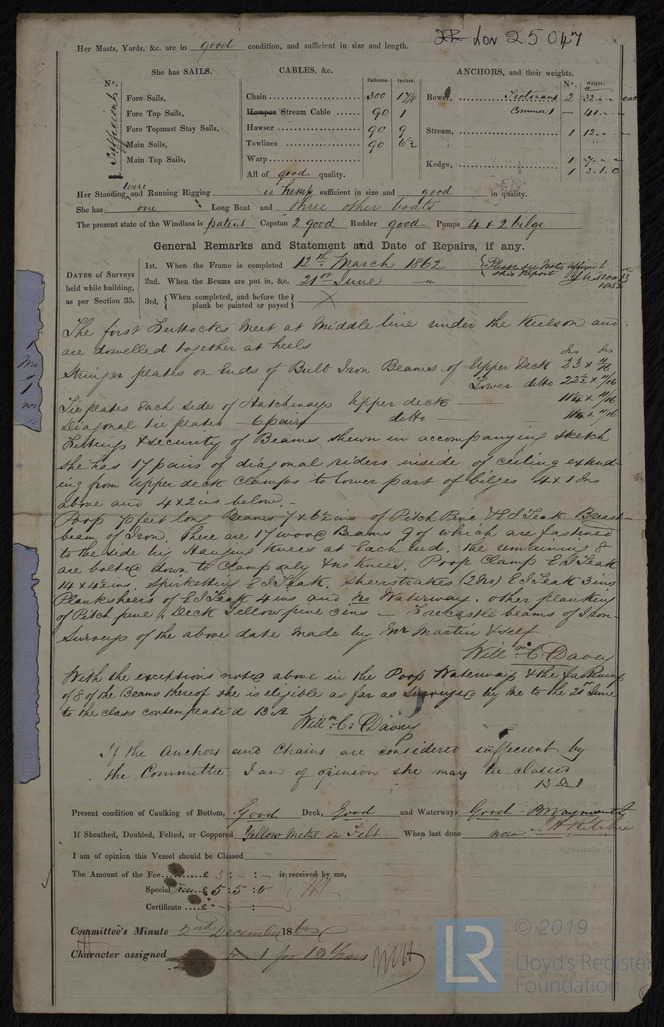 Lon 25047
Her Masts, Yards, &c. are in good condition, and sufficient in size and length.
She has SAILS. CABLES, &c. ANCHORS, and their weights.
N°. Fathoms. Inches. N°. Weight.
Sufficient
Fore Sails, Chain 300 Bower, Trotmans 2 32
Fore Top Sails, Hempen Stream Cable 90 1 Common 1 41
Fore Topmast Stay Sails, Hawser 90 9 Stream, 1 12
Main Sails, Towlines 90 6½
Main Top Sails, Warp Kedge, 1
All of good quality. 1 3.1.0
Her Standing wire and Running Rigging is hemp sufficient in size and good in quality.
She has one Long Boat and three other boats
The present state of the Windlass is patent Capstan 2 good Rudder good Pumps 4 & 2 bilge
General Remarks and Statement and Date of Repairs, if any.
DATES of Surveys held while building, as per Section 35.
1st. When the Frame is completed 12th March 1862
2nd. When the Beams are put in, &c. 21st June "
3rd. { When completed, and before the plank be painted or payed }
Please see Notes
this Report
The first Futtocks meet at middle line under the Keelson and
are dowelled together at heels
Stringer plates on Ends of Bulb Iron Beams of Upper Deck 23 x 11/16
Lower ditto 22½ x 11/16
Tie plates Each side of Hatchways Upper deck 11¼ x 11/16
Diagonal tie plates 6 pairs ditto 11¼ x 11/16
Fittings & security of Beams shewn in accompanying sketch
She has 17 pairs of diagonal riders inside of ceiling extend-
ing from Upper deck Clamps to lower part of bilges 4 x 1 Ins
above and 4 x 2 ins below.-
Poop 70 feet long Beams 7 x 6½ ins of Pitch Pine & E I Teak Breast-
beam of Iron. There are 17 wood Beams 9 of which are fastened
to the side by Hanging Knees at Each end, the remaining 8
are bolted down to Clamp only & no Knees. Poop Clamp E I Teak
14 x 4½ ins Spirketting E I Teak, Sheerstrakes (2 No) E I Teak 3 ins
Planksheers of E I Teak 4 ins and no Waterway, other planking
of Pitch pine, Deck Yellow pine 3 ins — Forecastle beams of Iron
Surveys of the above date made by Mr Martin & self
Willm C. Davey
With the exceptions noted above in the Poop Waterways & the fastening
of 8 of the Beams thereof she is eligible as far as Surveyed by me to the 21st June
to the class contemplated 13 A
Willm C: Davey
If the Anchors and Chains are considered sufficient by
the Committee I am of opinion she may be classed
Present condition of Caulking of Bottom, Good Deck, Good and Waterways Good
If Sheathed, Doubled, Felted, or Coppered Yellow Metal on Felt When last done now
I am of opinion this Vessel should be Classed
The Amount of the Fee £ 5 : - : - is received by me,
Special £ 5 : 5 : 0
Certificate £ - : - : -
Committee's Minute 2nd December 186
Character assigned A 1 for 13 Years
LR © 2019
Lloyd's Register
Foundation